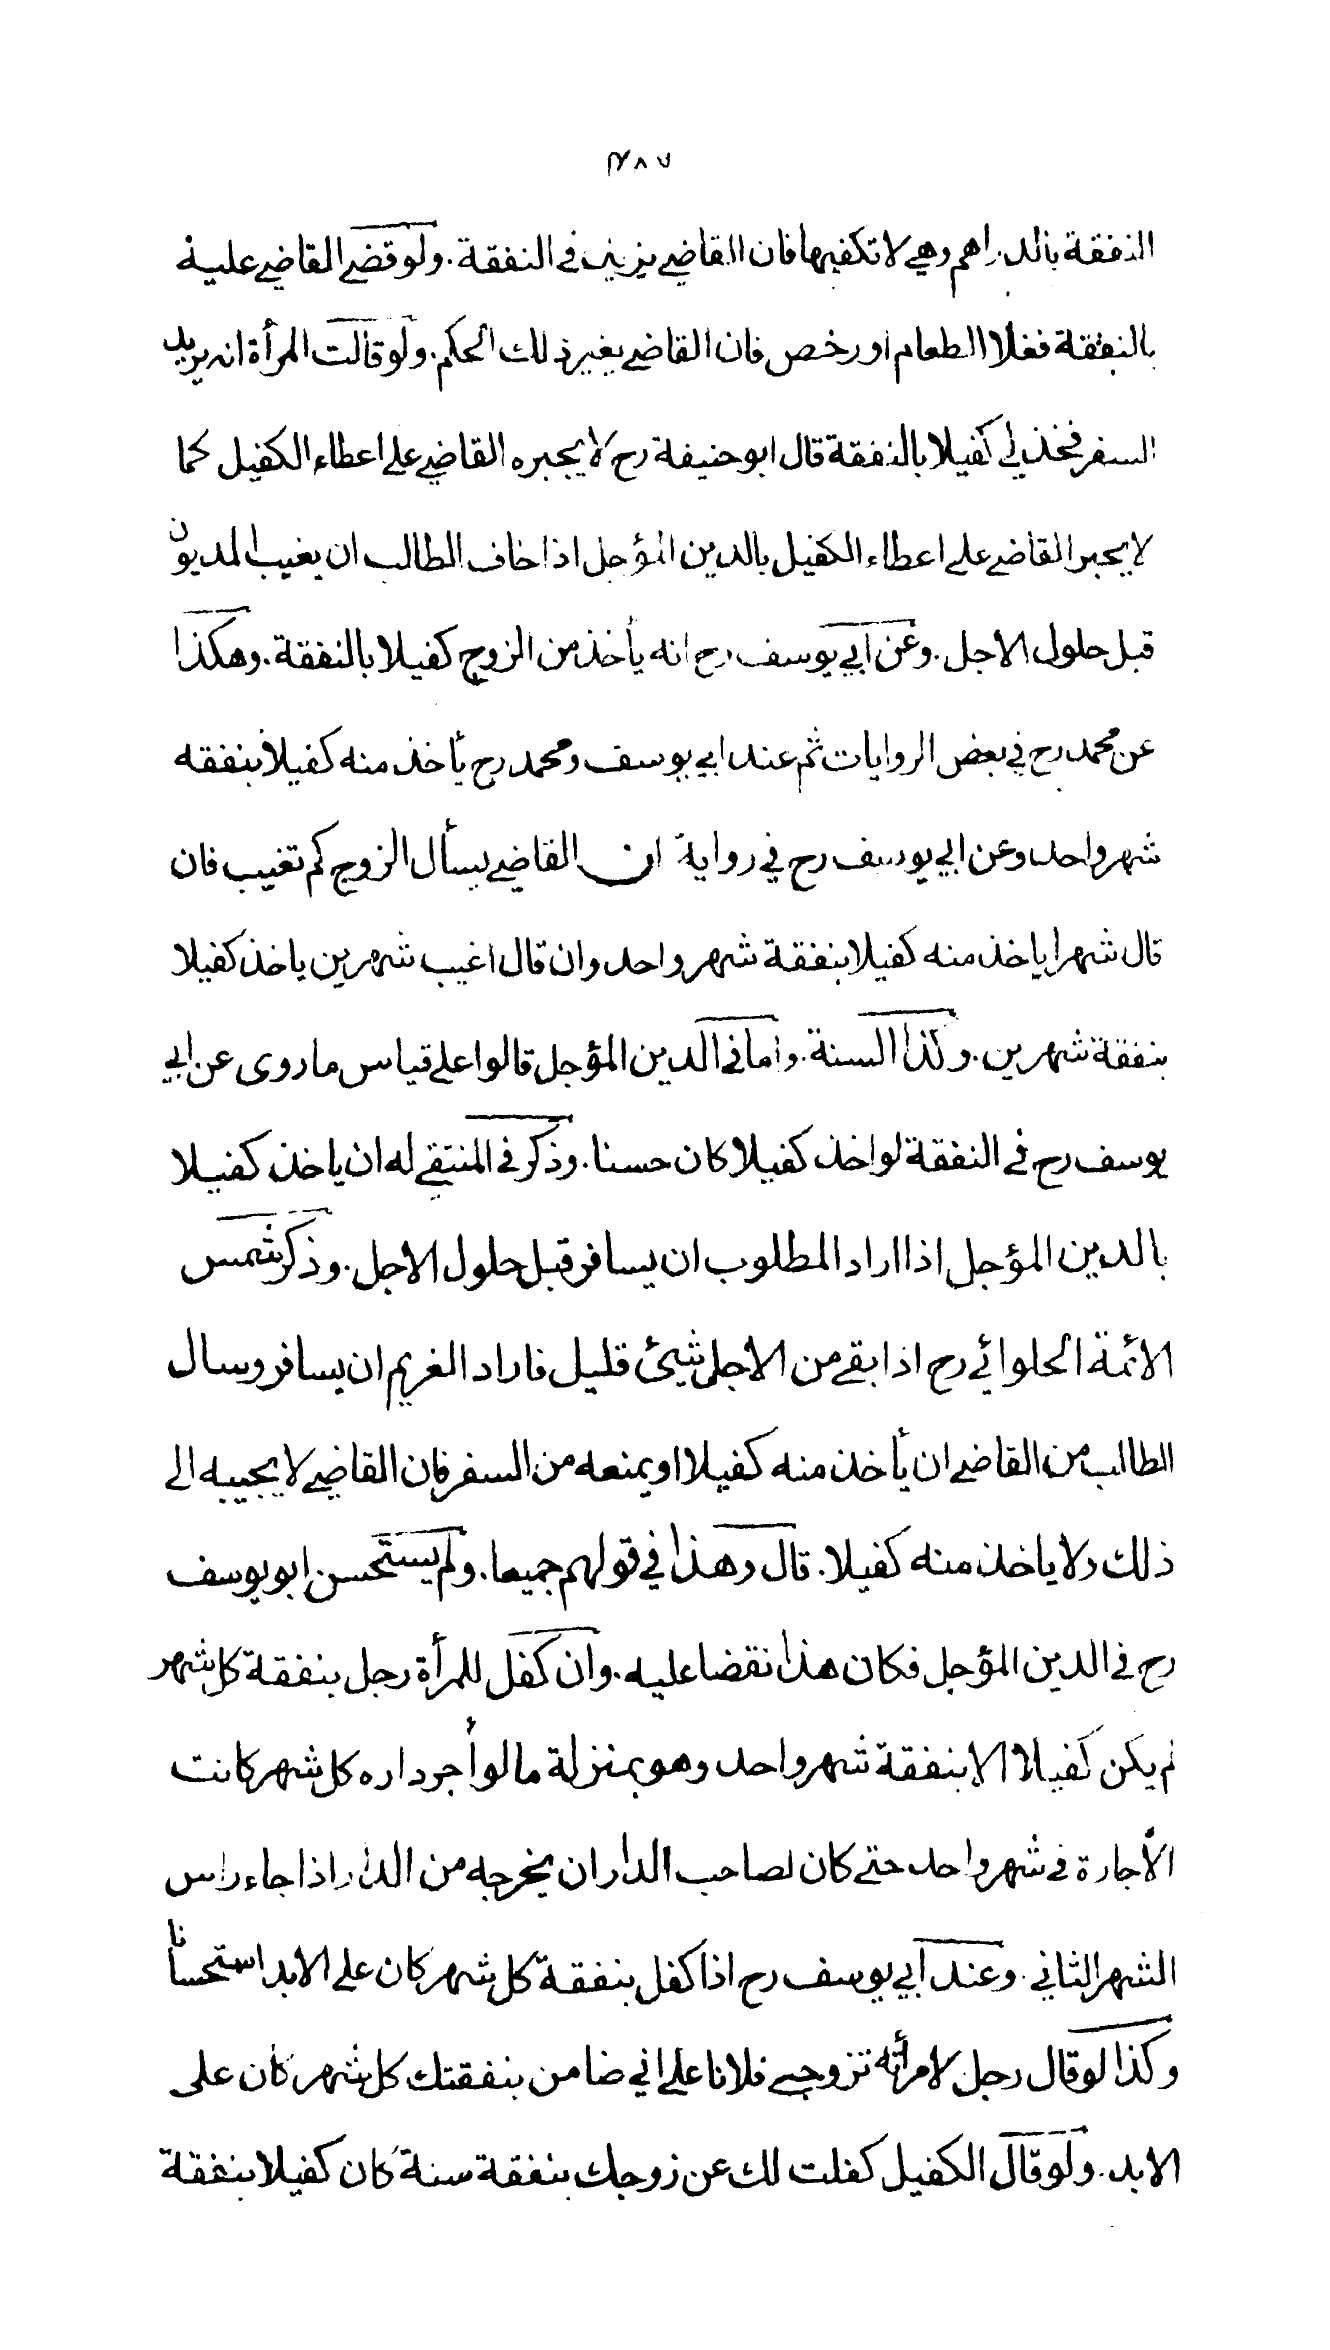 ٤٨٧
النفقة بالدراهم وهي لا تكفيها فان القاضي يزيد في النفقة . ولو قضي القاضي عليه
بالنفقة فغلا الطعام او رخص فان القاضي يغير ذلك الحكم . ولو قالت المرأة انه يريد
السفر فخذ لي كفيلا بالنفقة قال ابو حنيفة رح لا يجبره القاضي على اعطاء الكفيل كما
لا يجبر القاضي على اعطاء الكفيل بالدين المؤجل اذا خاف الطالب ان يغيب المديون
قبل حلول الاجل . وعن ابي يوسف رح انه يأخذ من الزوج كفيلا بالنفقة . وهكذا
عن محمد رح في بعض الروايات ثم عند ابي يوسف ومحمد رح يأخذ منه كفيلا بنفقه
شهر واحد وعن ابي يوسف رح في رواية ان القاضي يسأل الزوج كم تغيب فان
قال شهرا ياخذ منه كفيلا بنفقة شهر واحد وان قال اغيب شهرين ياخذ كفيلا
بنفقة شهرين . وكذا السنة . واما في الدين المؤجل قالوا على قياس ما روى عن ابي
يوسف رح في النفقة لو اخذ كفيلا كان حسنا . وذكر في المنتقي له ان ياخذ كفيلا
بالدين المؤجل اذا اراد المطلوب ان يسافر قبل حلول الاجل . وذكر شمس
الائمة الحلوائي رح اذا بقي من الاجل شيئ قليل فاراد الغريم ان يسافر وسال
الطالب من القاضي ان يأخذ منه كفيلا او يمنعه من السفر فان القاضي لا يجيبه الى
ذلك ولا ياخذ منه كفيلا . قال وهذا في قولهم جميعا . ولم يستحسن ابو يوسف
رح في الدين المؤجل فكان هذا نقضا عليه . وان كفل للمرأة رجل بنفقة كل شهر
لم يكن كفيلا الا بنفقة شهر واحد وهو بمنزلة ما لو أجر داره كل شهر كانت
الأجارة في شهر واحد حتى كان لصاحب الدار ان يخرجه من الدار اذا جاء راس
الشهر الثاني . وعند ابي يوسف رح اذا كفل بنفقة كل شهر كان على الابد استحسانا
وكذا لو قال رجل لامرأته تزوجي فلانا على اني ضامن بنفقتك كل شهر كان على
الابد . ولو قال الكفيل كفلت لك عن زوجك بنفقة سنة كان كفيلا بنفقة